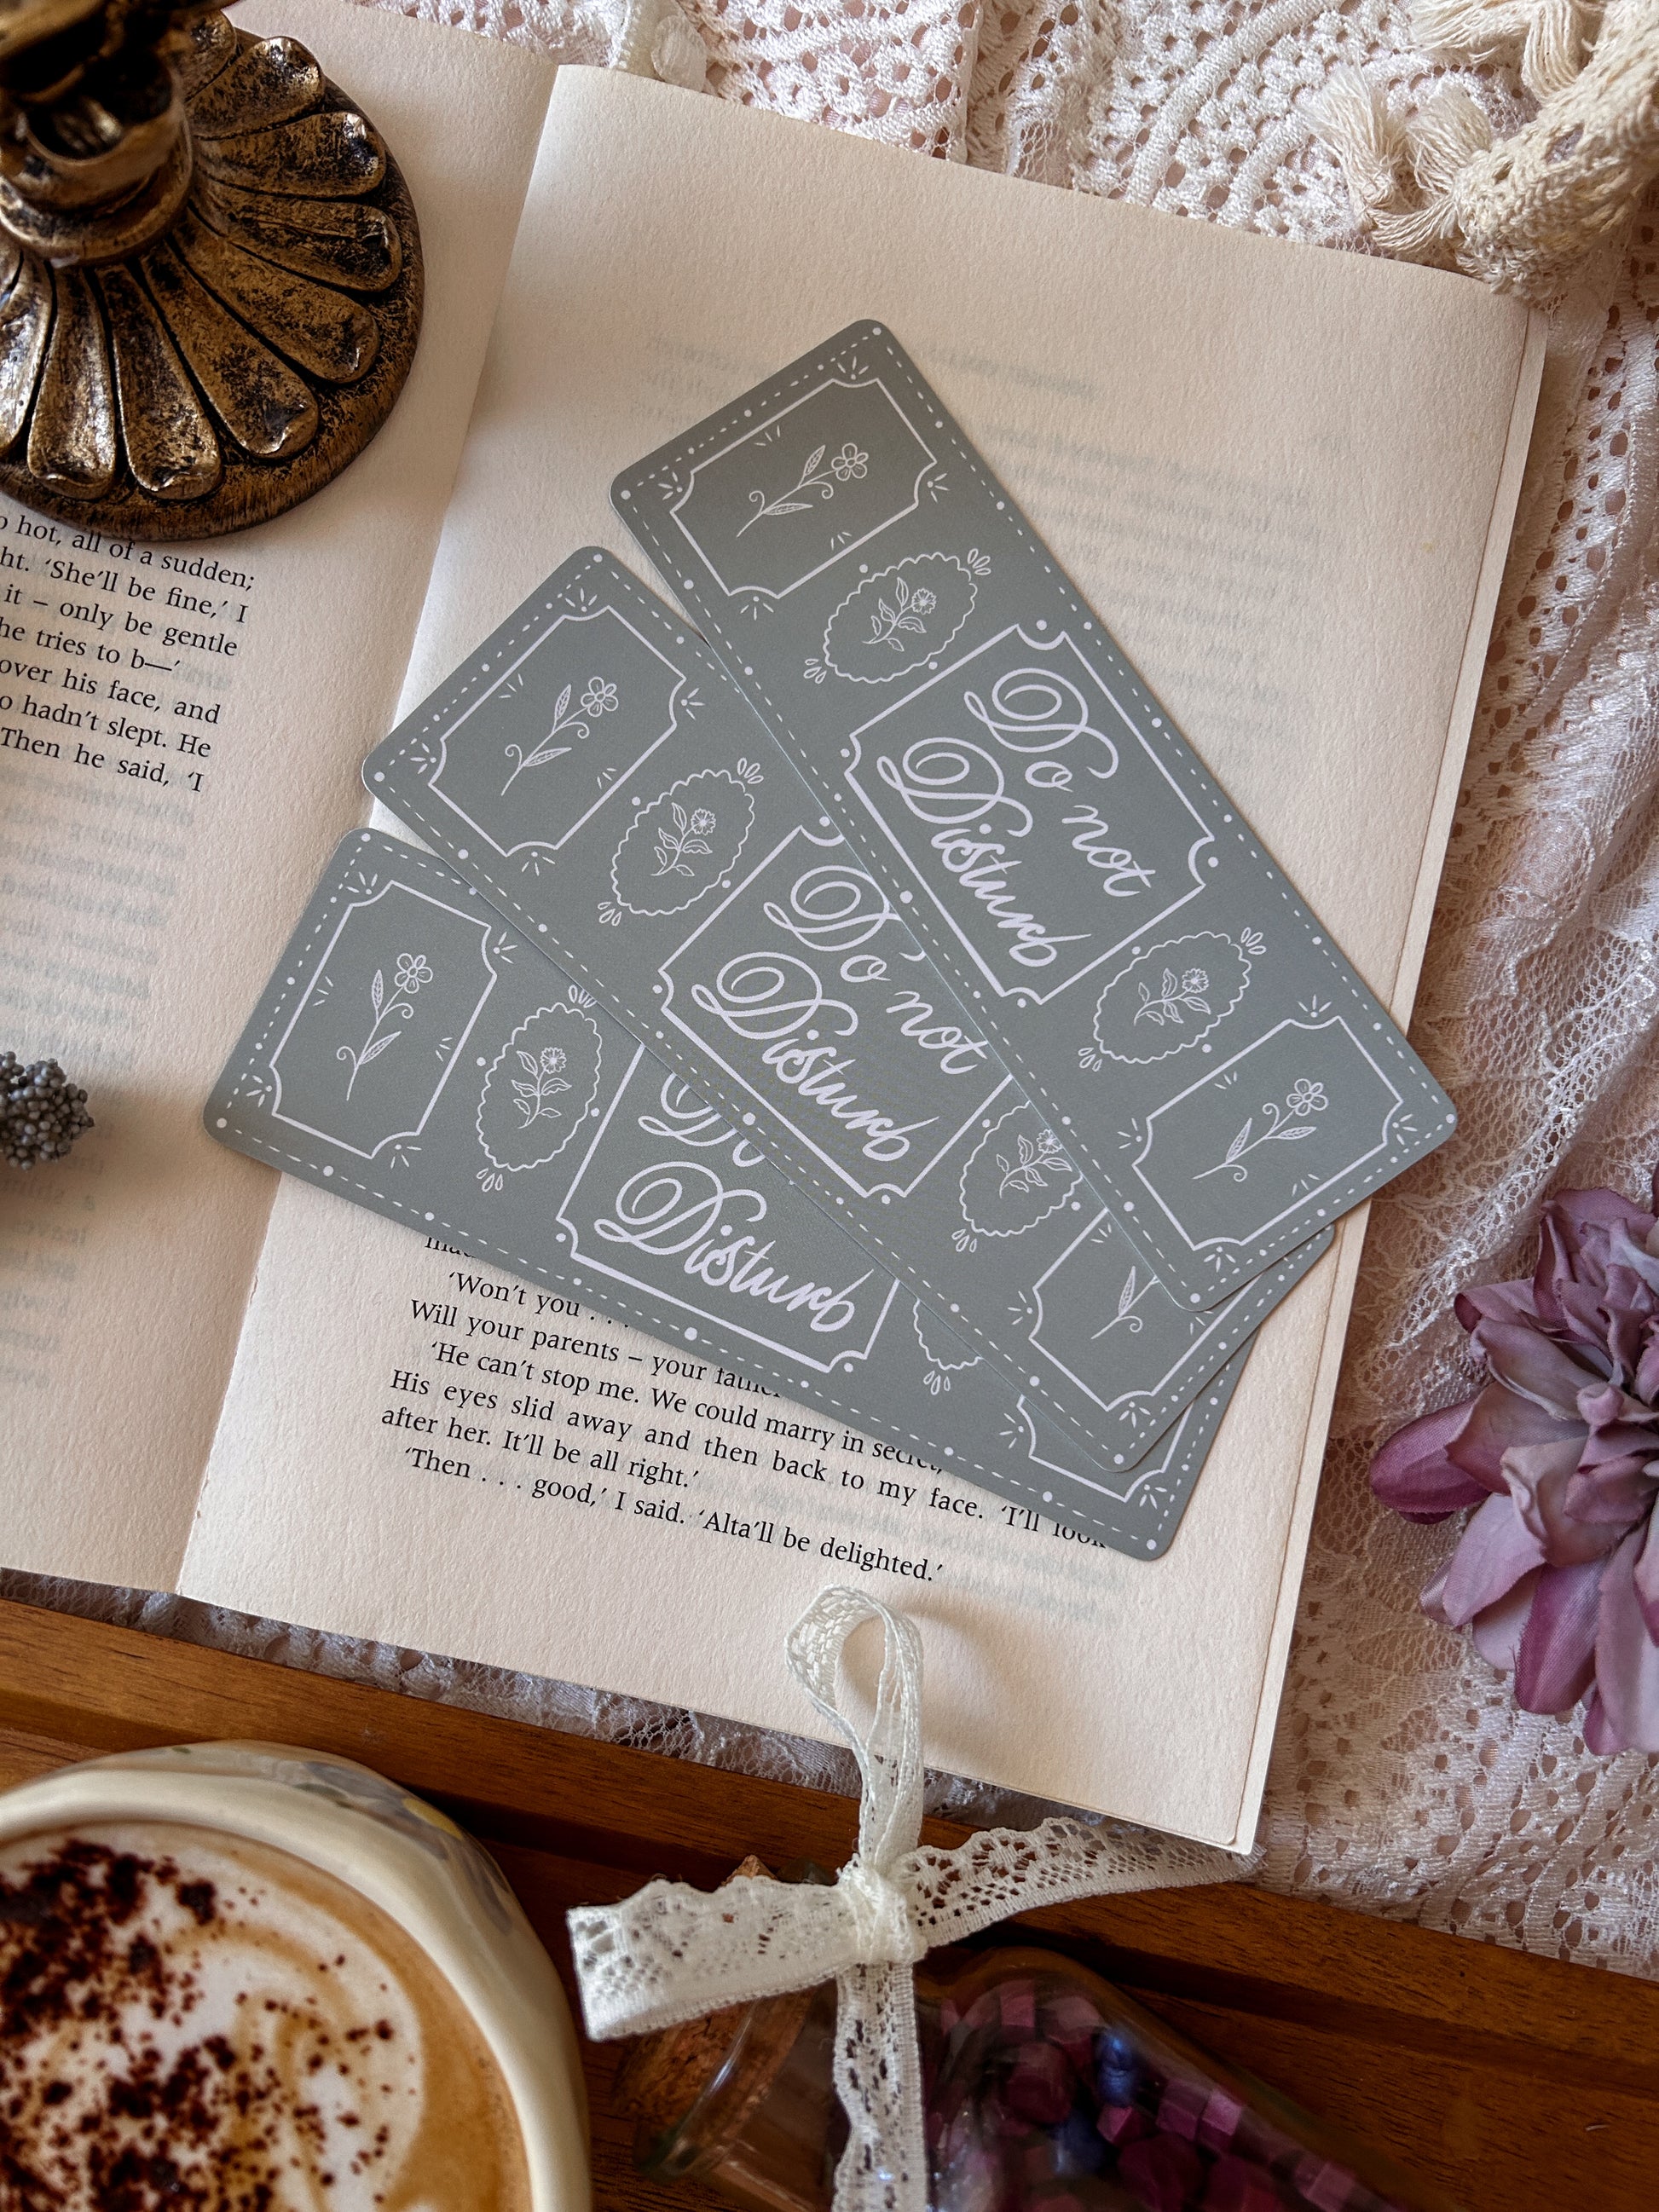 o hot, all of a sudden;
ht. ‘She’ll be fine,’ I
it – only be gentle
he tries to b—’
over his face, and
o hadn’t slept. He
Then he said, ‘I
Do not
Disturb
Do not
Disturb
Do
Disturb
‘Won’t you . . .
Will your parents – your father
‘He can’t stop me. We could marry in secret,
His eyes slid away and then back to my face. ‘I’ll look
after her. It’ll be all right.’
‘Then . . . good,’ I said. ‘Alta’ll be delighted.’